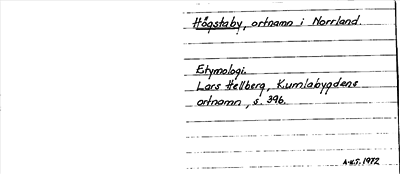 Högstaby, ortnamn i Norrland.
Etymologi.
Lars Hellberg, Kumlabygdens
ortnamn, s. 396.
A.W.S. 1972